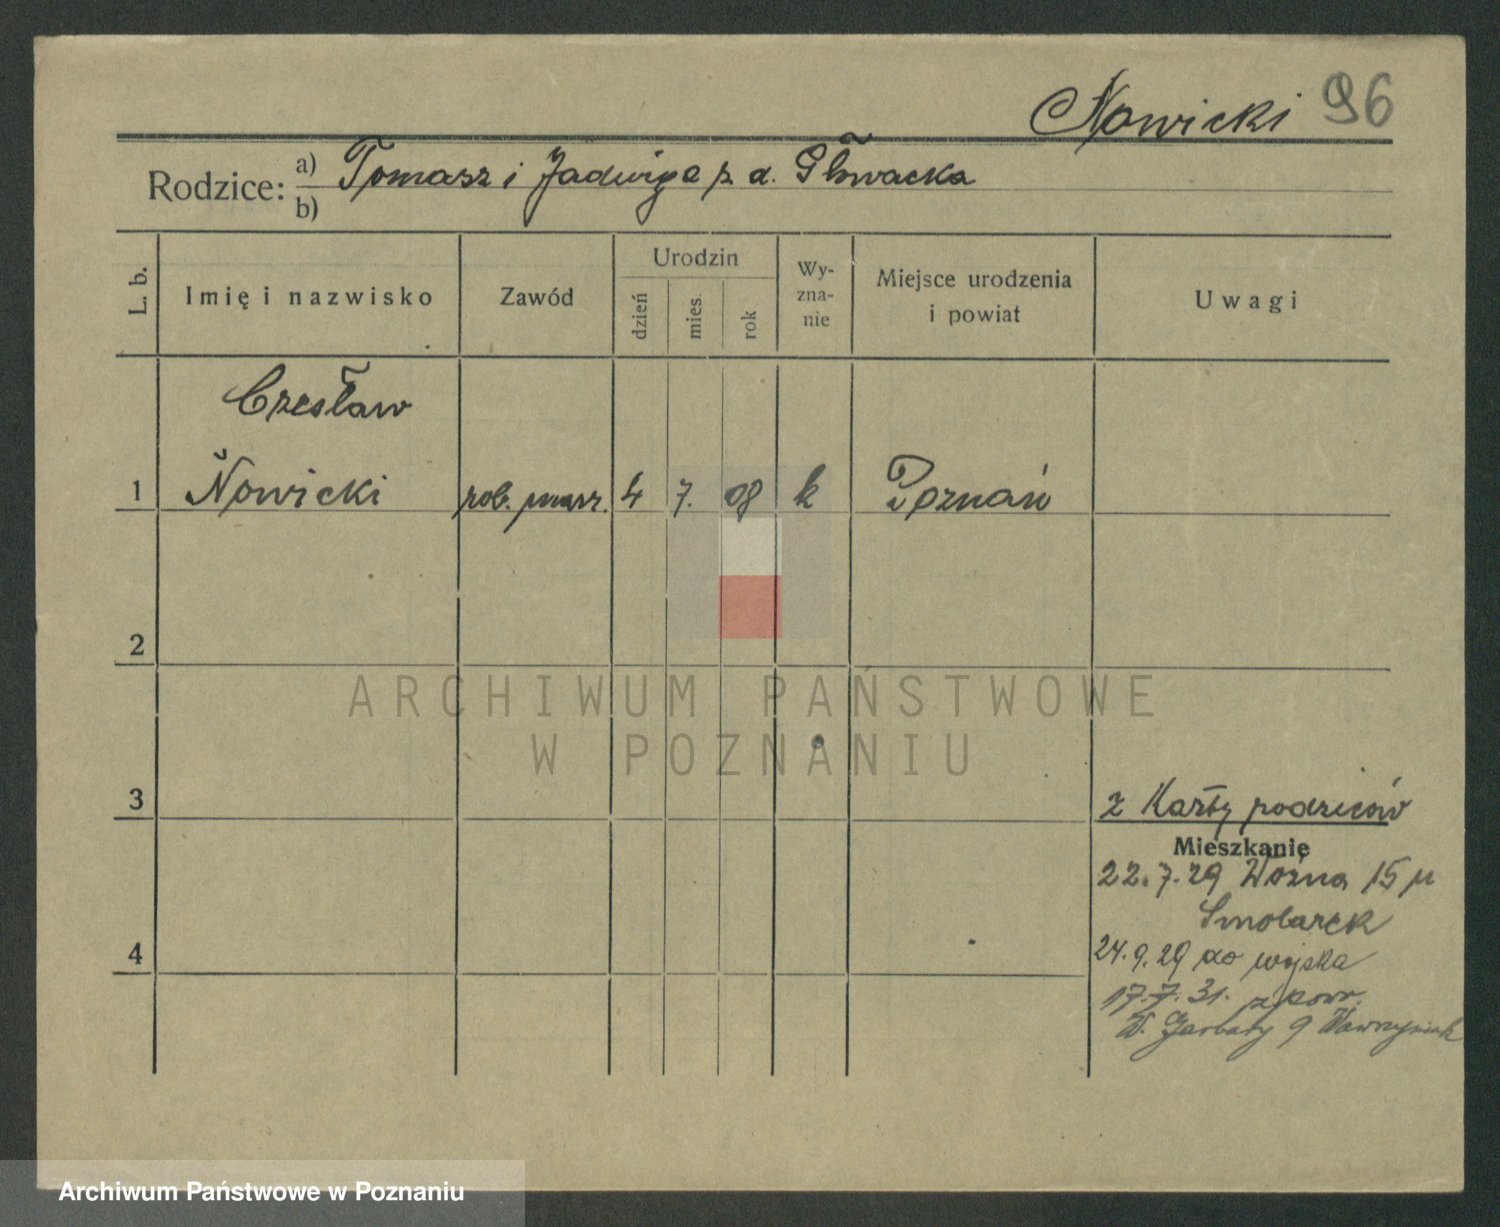 Nowicki 96
Rodzice: a) Tomasz i Jadwiga z d. Głowacka
b)
L. b.
Imię i nazwisko
Zawód
Urodzin
dzień
mies.
rok
Wy-
zna-
nie
Miejsce urodzenia
i powiat
Uwagi
Czesław
1 Nowicki rob. masz. 4 7. 08 k Poznań
2
ARCHIWUM PAŃSTWOWE
W POZNANIU
3
z Karty rodziców
Mieszkanie
22.7.29 Woźna 15 u
Smolarek
4
24.9.29 do wojska
17.7.31. z powr.
W. Garbary 9 Wawrzyniak
Archiwum Państwowe w Poznaniu